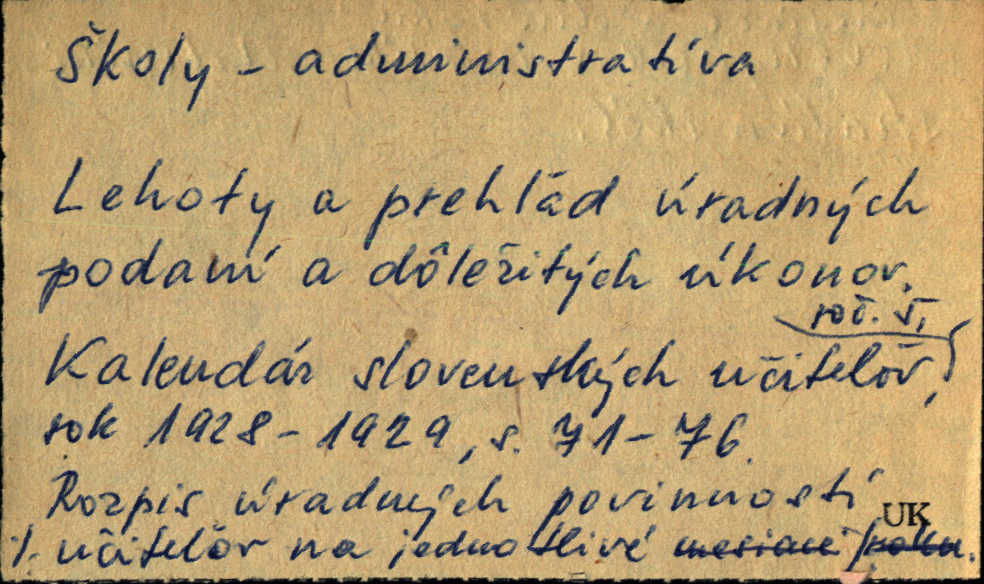 Školy - administratíva
Lehoty a prehľad úradných
podaní a dôležitých úkonov.
roč. V,
Kalendár slovenských učiteľov,
rok 1928-1929, s. 71-76.
Rozpis úradných povinností
UK
%. učiteľov na jednotlivé mesiace roku.